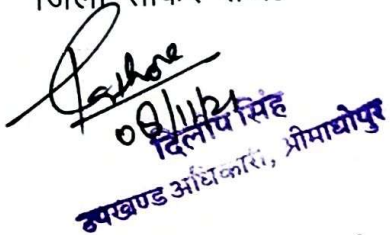 जिला
Rathore
08/11/21
दिलीप सिंह
उपखण्ड अधिकारी, श्रीमाधोपुर